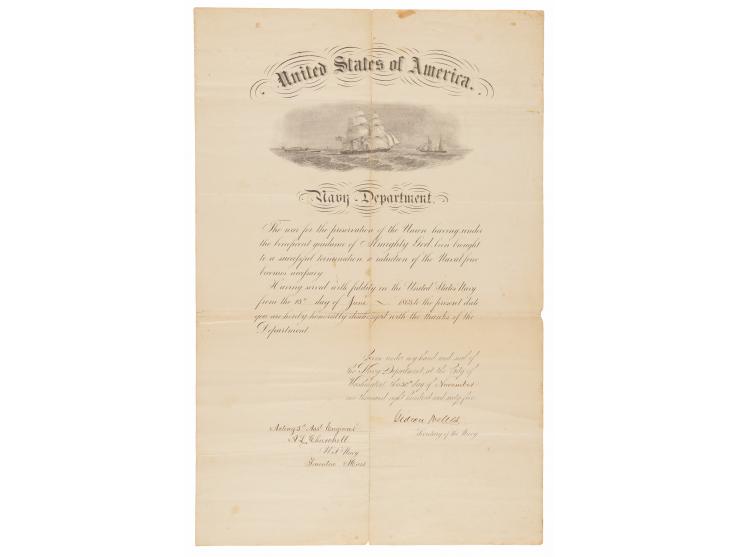 United States of America.
Navy Department.
The war for the preservation of the Union having, under
the beneficent guidance of Almighty God, been brought
to a successful termination, a reduction of the Naval force
becomes necessary.
Having served with fidelity in the United States Navy
from the 18th day of June 1863 to the present date
you are hereby honorably discharged with the thanks of the
Department.
Given under my hand and seal of
the Navy Department, at the City of
Washington, this 30th day of November
one thousand eight hundred and sixty five
Gideon Welles
Secretary of the Navy
Acting 3d Asst Engineer
Churchill
U.S. Navy
Taunton Mass